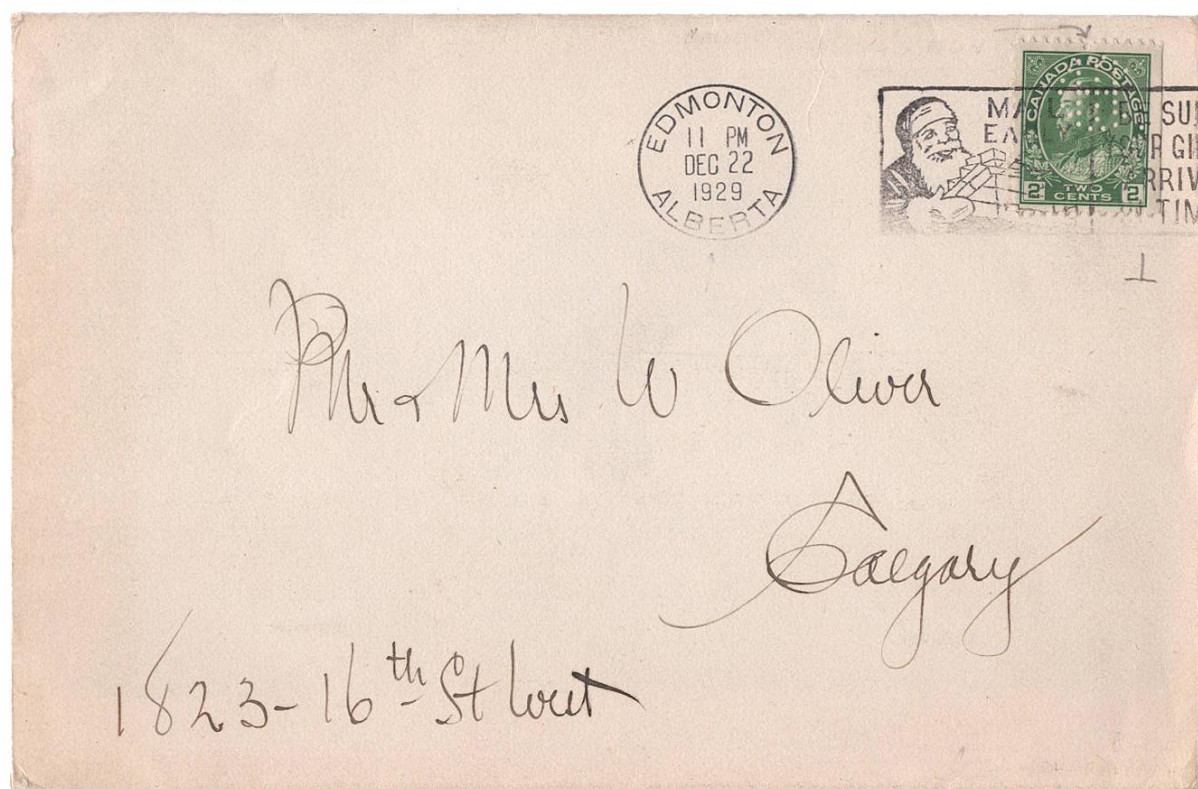 EDMONTON
11 PM
DEC 22
1929
ALBERTA
CANADA POSTAGE
2 TWO CENTS 2
Mr & Mrs W Oliver
Calgary
1823-16th St West